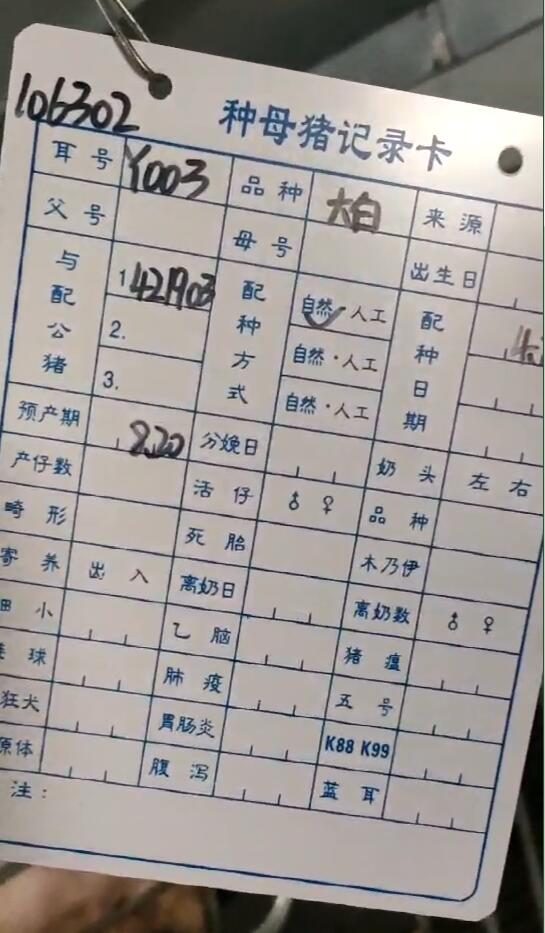 106302
种母猪记录卡
耳号 Y003 品种 大白 来源
父号 母号 出生日
与配公猪 配种方式 配种日期
1 421903 自然·人工
2. 自然·人工
3. 自然·人工
预产期 8.20 分娩日 奶头 左右
产仔数 活仔 ♂ ♀ 品种
畸形 死胎 木乃伊
寄养 出 入 离奶日 离奶数 ♂ ♀
细小 乙脑 猪瘟
球 肺疫 五号
狂犬 胃肠炎 K88 K99
原体 腹泻 蓝耳
注：